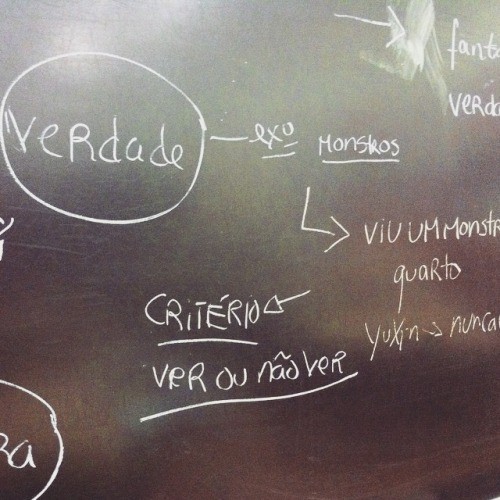 fanta
verda
verdade
exo
monstros
viu um monstr
quarto
critério
yuxin → nunca
ver ou não ver
ra